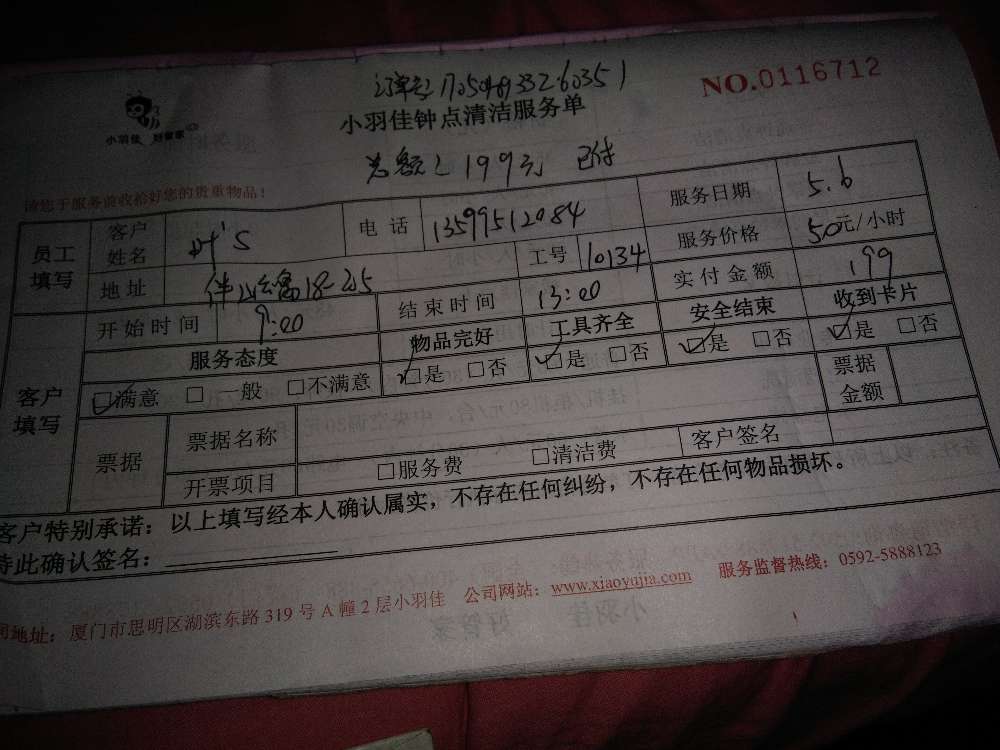 NO.0116712
小羽佳 好管家
小羽佳钟点清洁服务单
总额:199元 已付
请您于服务前收拾好您的贵重物品!
员工填写 客户姓名 叶'S 电话 13599512084 服务日期 5.6
地址 18-205 工号 10134 服务价格 50元/小时
客户填写 开始时间 9:00 结束时间 13:00 实付金额 199
服务态度 物品完好 工具齐全 安全结束 收到卡片
☑满意 □一般 □不满意 ☑是 □否 ☑是 □否 ☑是 □否 ☑是 □否
票据 票据名称 票据金额
开票项目 □服务费 □清洁费 客户签名
客户特别承诺:以上填写经本人确认属实,不存在任何纠纷,不存在任何物品损坏。
特此确认签名:
地址:厦门市思明区湖滨东路319号A幢2层小羽佳 公司网站:www.xiaoyujia.com 服务监督热线:0592-5888123